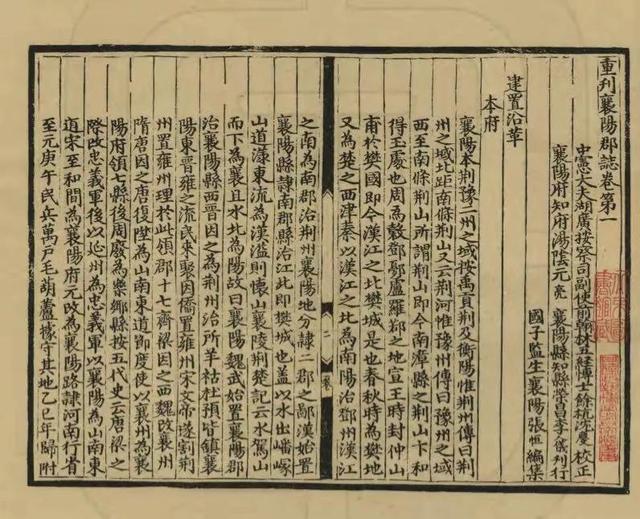 重刊襄陽郡誌卷第一
中憲大夫湖廣按察司副使前翰林五經博士餘杭沈慶校正
襄陽府知府湯陰元亮　襄陽縣知縣榮昌李人儀刊行
國子監生襄陽張恒編集
建置沿革
本府
襄陽本荊豫二州之域按禹貢荊及衡陽惟荊州傳曰荊
州之域北距南條荊山又云荊河惟豫州傳曰豫州之域
西至南條荊山所謂荊山即今南漳縣之荊山卞和
得玉處也周為穀鄧鄾盧羅鄀之地宣王時封仲山
甫於樊國即今漢江之北樊城是也春秋時為樊地
又為楚之西津秦以漢江之北為南陽治鄧州漢江
之南為南郡治荊州襄陽地分隸二郡之鄙漢始置
襄陽縣隸南郡縣治江此即樊城也蓋以水出嶓冢
山道漾東流為漢溢則懷山襄陵荊楚記云水駕山
而下為襄且水北為陽故曰襄陽魏武始置襄陽郡
治襄陽縣西晉因之為荊州治所羊祜杜預皆鎮襄
陽東晉雍之流民來聚因僑置雍州宋文帝遂割荊
州置雍州理於此領郡十七齊梁因之西魏改襄州
隋唐因之唐復陞為山南東道節度使以襄州為襄
陽府領七縣後周廢為樂鄉縣按五代史云唐梁之
際改忠義軍後以延州為忠義軍以襄陽為山南東
道宋至和間為襄陽府元改為襄陽路隸河南行省
至元庚午民兵萬戶毛葫蘆據守其地乙巳年歸附